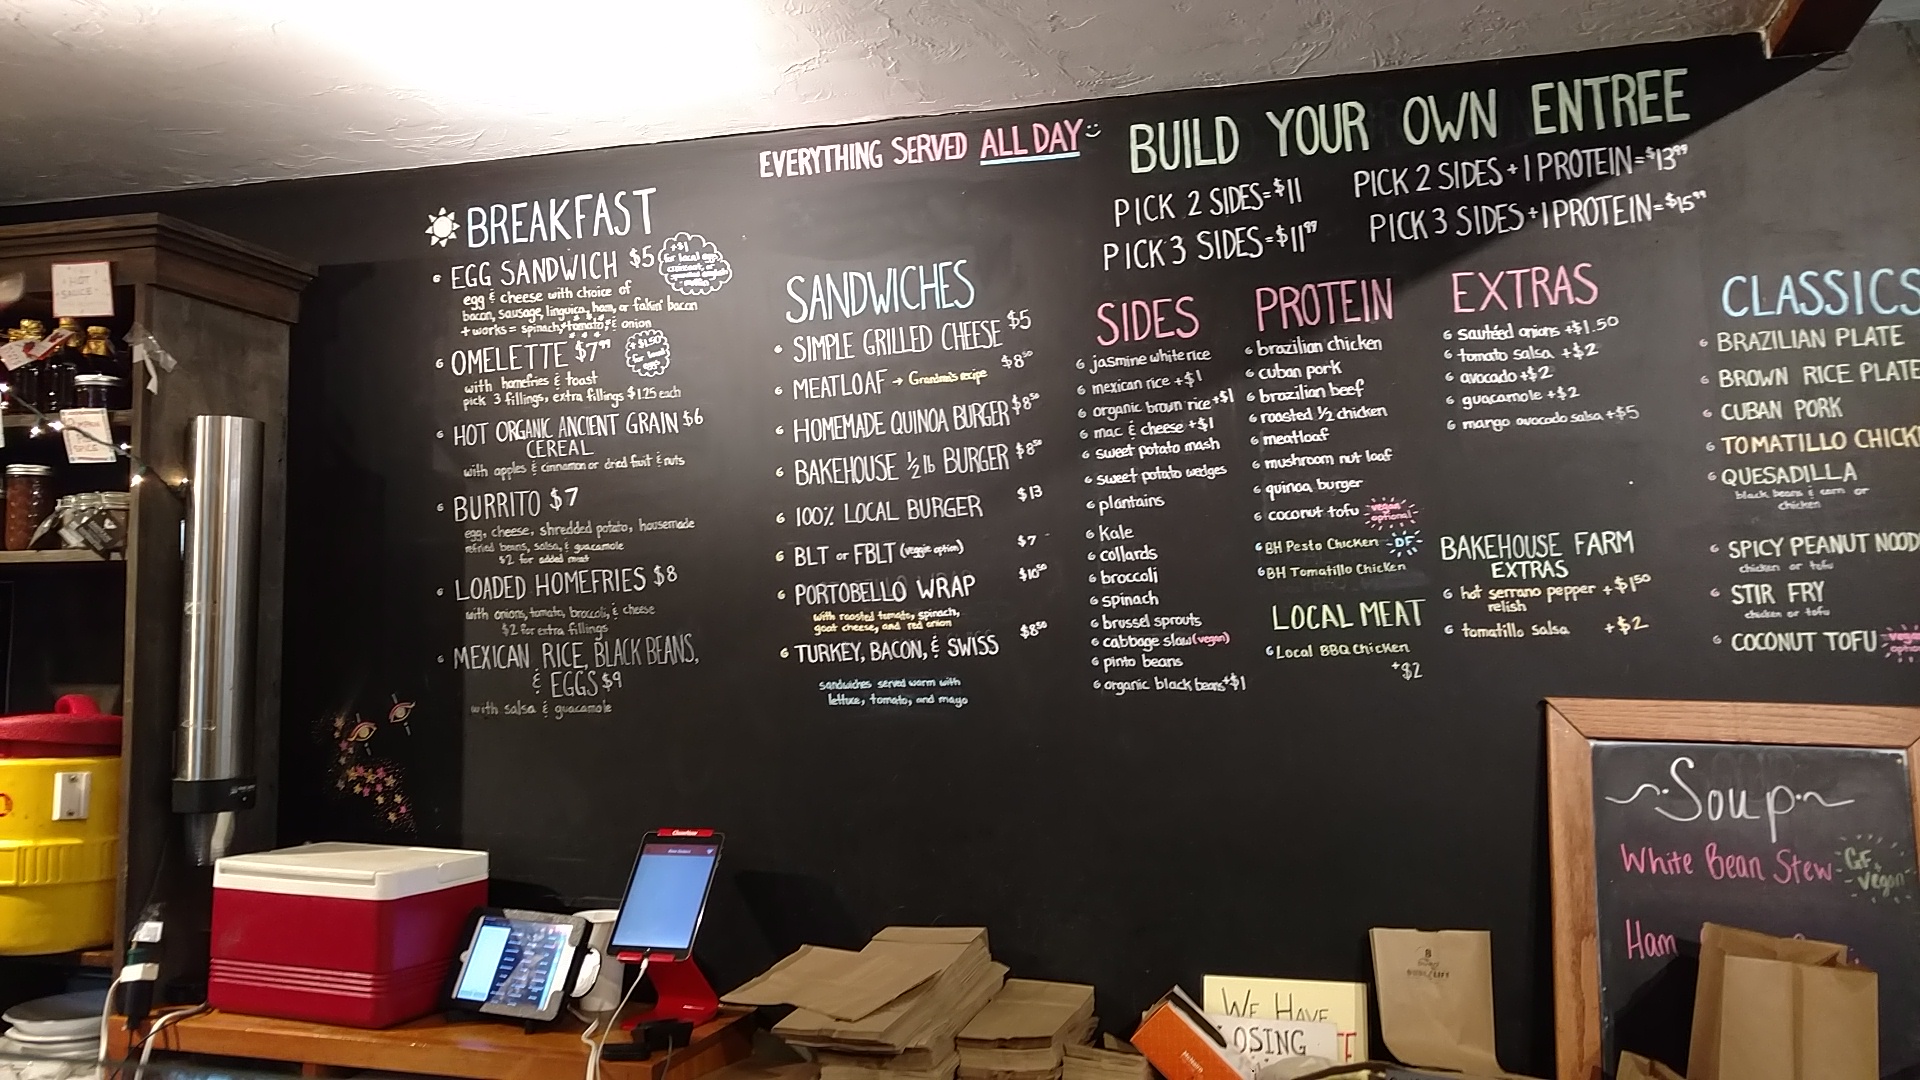 EVERYTHING SERVED ALL DAY
BREAKFAST
EGG SANDWICH $5
+$1
for local egg,
croissant, or
egg & cheese with choice of
bacon, sausage, linguica, ham, or fakin' bacon
+ works = spinach, tomato, & onion
OMELETTE $7⁹⁹
+ $1.50
for local
eggs
with homefries & toast
pick 3 fillings, extra fillings $1.25 each
HOT ORGANIC ANCIENT GRAIN $6
CEREAL
with apples & cinnamon or dried fruit & nuts
BURRITO $7
egg, cheese, shredded potato, housemade
refried beans, salsa, & guacamole
$2 for added meat
LOADED HOMEFRIES $8
with onions, tomato, broccoli, & cheese
$2 for extra fillings
MEXICAN RICE, BLACK BEANS,
& EGGS $9
with salsa & guacamole
SANDWICHES
SIMPLE GRILLED CHEESE $5
MEATLOAF → Grandma's recipe $8⁵⁰
HOMEMADE QUINOA BURGER $8⁵⁰
BAKEHOUSE ½ lb BURGER $8⁵⁰
100% LOCAL BURGER $13
BLT or FBLT (veggie option) $7
PORTOBELLO WRAP $10⁵⁰
with roasted tomato, spinach,
goat cheese, and red onion
TURKEY, BACON, & SWISS $8⁵⁰
sandwiches served warm with
lettuce, tomato, and mayo
BUILD YOUR OWN ENTREE
PICK 2 SIDES=$11
PICK 2 SIDES + 1 PROTEIN=$13⁹⁹
PICK 3 SIDES=$11⁹⁹
PICK 3 SIDES + 1 PROTEIN=$15⁹⁹
SIDES
jasmine white rice
mexican rice +$1
organic brown rice +$1
mac & cheese +$1
sweet potato mash
sweet potato wedges
plantains
Kale
collards
broccoli
spinach
brussel sprouts
cabbage slaw (vegan)
pinto beans
organic black beans +$1
PROTEIN
brazilian chicken
cuban pork
brazilian beef
roasted ½ chicken
meatloaf
mushroom nut loaf
quinoa burger
coconut tofu vegan
optional
BH Pesto Chicken -DF-
BH Tomatillo Chicken
LOCAL MEAT
Local BBQ Chicken
+$2
EXTRAS
sautéed onions +$1.50
tomato salsa +$2
avocado +$2
guacamole +$2
mango avocado salsa +$5
BAKEHOUSE FARM
EXTRAS
hot serrano pepper +$1⁵⁰
relish
tomatillo salsa +$2
CLASSICS
BRAZILIAN PLATE
BROWN RICE PLATE
CUBAN PORK
TOMATILLO CHICK
QUESADILLA
black beans & corn or
chicken
SPICY PEANUT NOOD
chicken or tofu
STIR FRY
chicken or tofu
COCONUT TOFU vegan
Soup
White Bean Stew GF
Vegan
Ham
HOT
SAUCE
WE HAVE
OSING